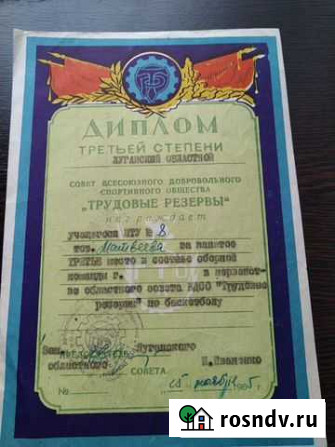 ДИПЛОМ
ТРЕТЬЕЙ СТЕПЕНИ
ЛУГАНСКИЙ ОБЛАСТНОЙ
СОВЕТ ВСЕСОЮЗНОГО ДОБРОВОЛЬНОГО
СПОРТИВНОГО ОБЩЕСТВА
„ТРУДОВЫЕ РЕЗЕРВЫ"
награждает
учащегося ПТУ № 8
тов. Матвеева за занятое
ТРЕТЬЕ место в составе сборной
команды г. в первенст-
ве областного совета ВДСО "Трудовые
резервы" по баскетболу
Луганского
областного СОВЕТА
№ 15 ноября г.
rosndv.ru